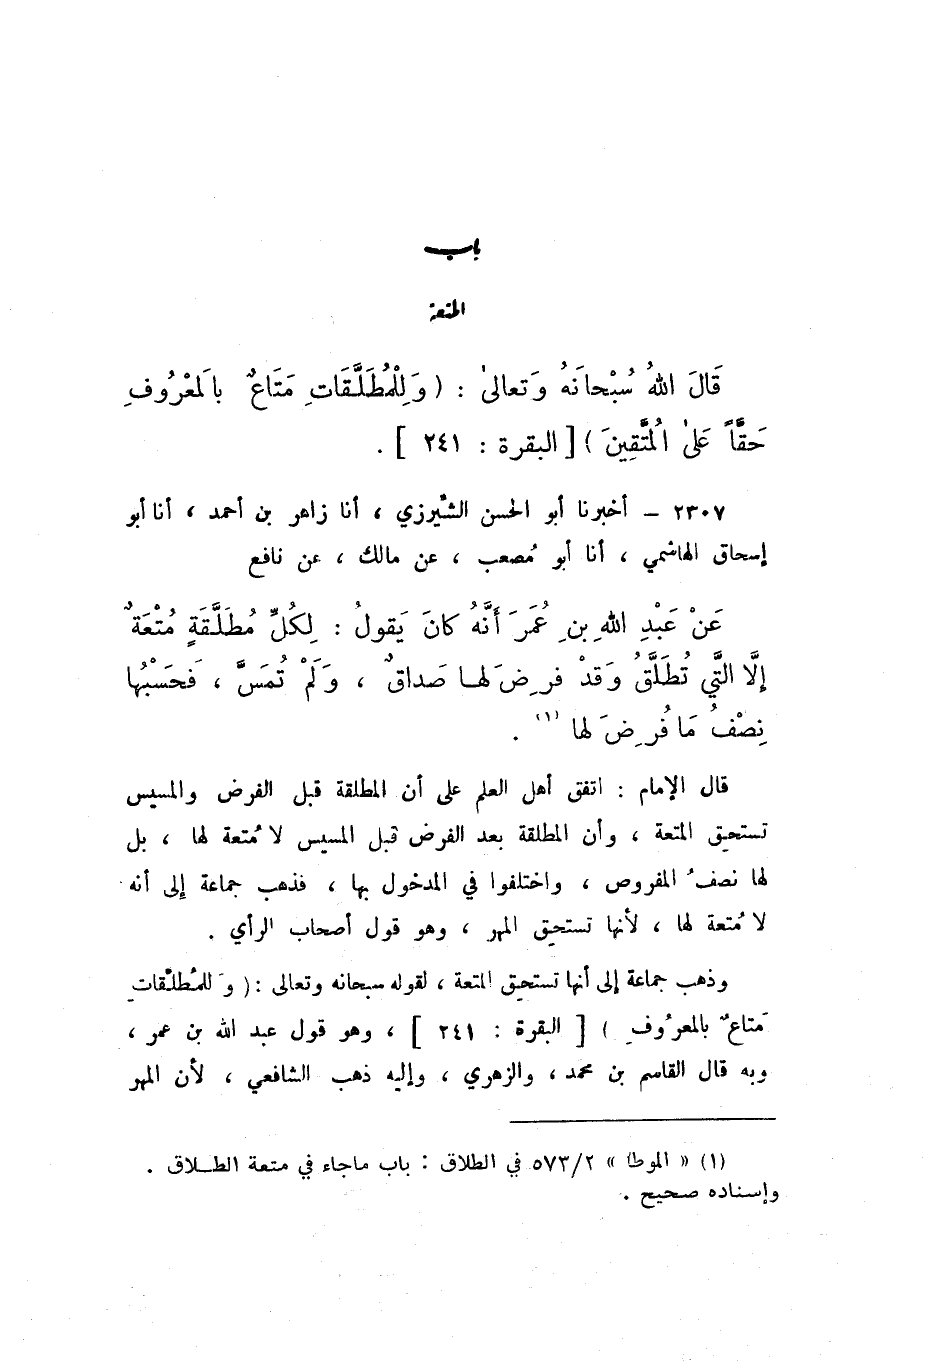 باب
المتعة
قَالَ اللهُ سُبْحانَهُ وَتَعالىٰ : ( وَلِلْمُطَلَّقَاتِ مَتَاعٌ بالَمعْرُوفِ
حَقَّاً عَلىٰ الُمتَّقِينَ ) [ البقرة : ٢٤١ ] .
٢٣٠٧ – أخبرنا أبو الحسن الشِّيرزي ، أنا زاهر بن أحمد ، أنا أبو
إسحاق الهاشمي ، أنا أبو مُصعب ، عن مالك ، عن نافع
عَنْ عَبْدِ اللهِ بنِ عُمَرَ أَنَّهُ كانَ يَقولُ : لِكُلِّ مُطَلَّقَةٍ مُتْعَةٌ
إلَّا الَّتي تُطَلَّقُ وَقَدْ فرِضَ لَهـا صَداقٌ ، وَلَمْ تُمَسَّ ، فَحَسْبُها
نِصْفُ مَا فُرِضَ لها (١) .
قال الإمام : اتفق أهل العلم على أن المطلقة قبل الفرض والمسيس
تستحق المتعة ، وأن المطلقة بعد الفرض قبل المسيس لا مُتعة لها ، بل
لها نصفُ المفروص ، واختلفوا في المدخول بها ، فذهب جماعة إلى أنه
لا مُتعة لها ، لأنها تستحق المهر ، وهو قول أصحاب الرأي .
وذهب جماعة إلى أنها تستحق المتعة ، لقوله سبحانه وتعالى : ( وَللمُطلَّقاتِ
مَتاعٌ بالمعرُوفِ ) [ البقرة : ٢٤١ ] ، وهو قول عبد الله بن عمر ،
وبه قال القاسم بن محمد ، والزهري ، وإليه ذهب الشافعي ، لأن المهر
(١) « الموطأ » ٥٧٣/٢ في الطلاق : باب ماجاء في متعة الطـلاق .
وإسناده صحيح .